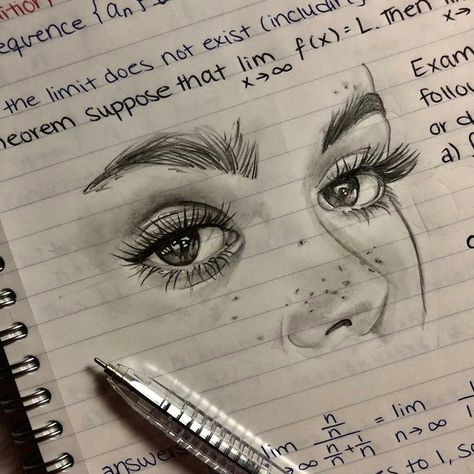 equence {aₙ}
the limit does not exist (includin
heorem suppose that lim x→∞ f(x) = L. Then
x→
Exam
follow
or d
a)
answers
lim n/n / n/n + 1/n = lim n→∞
s to 1, s